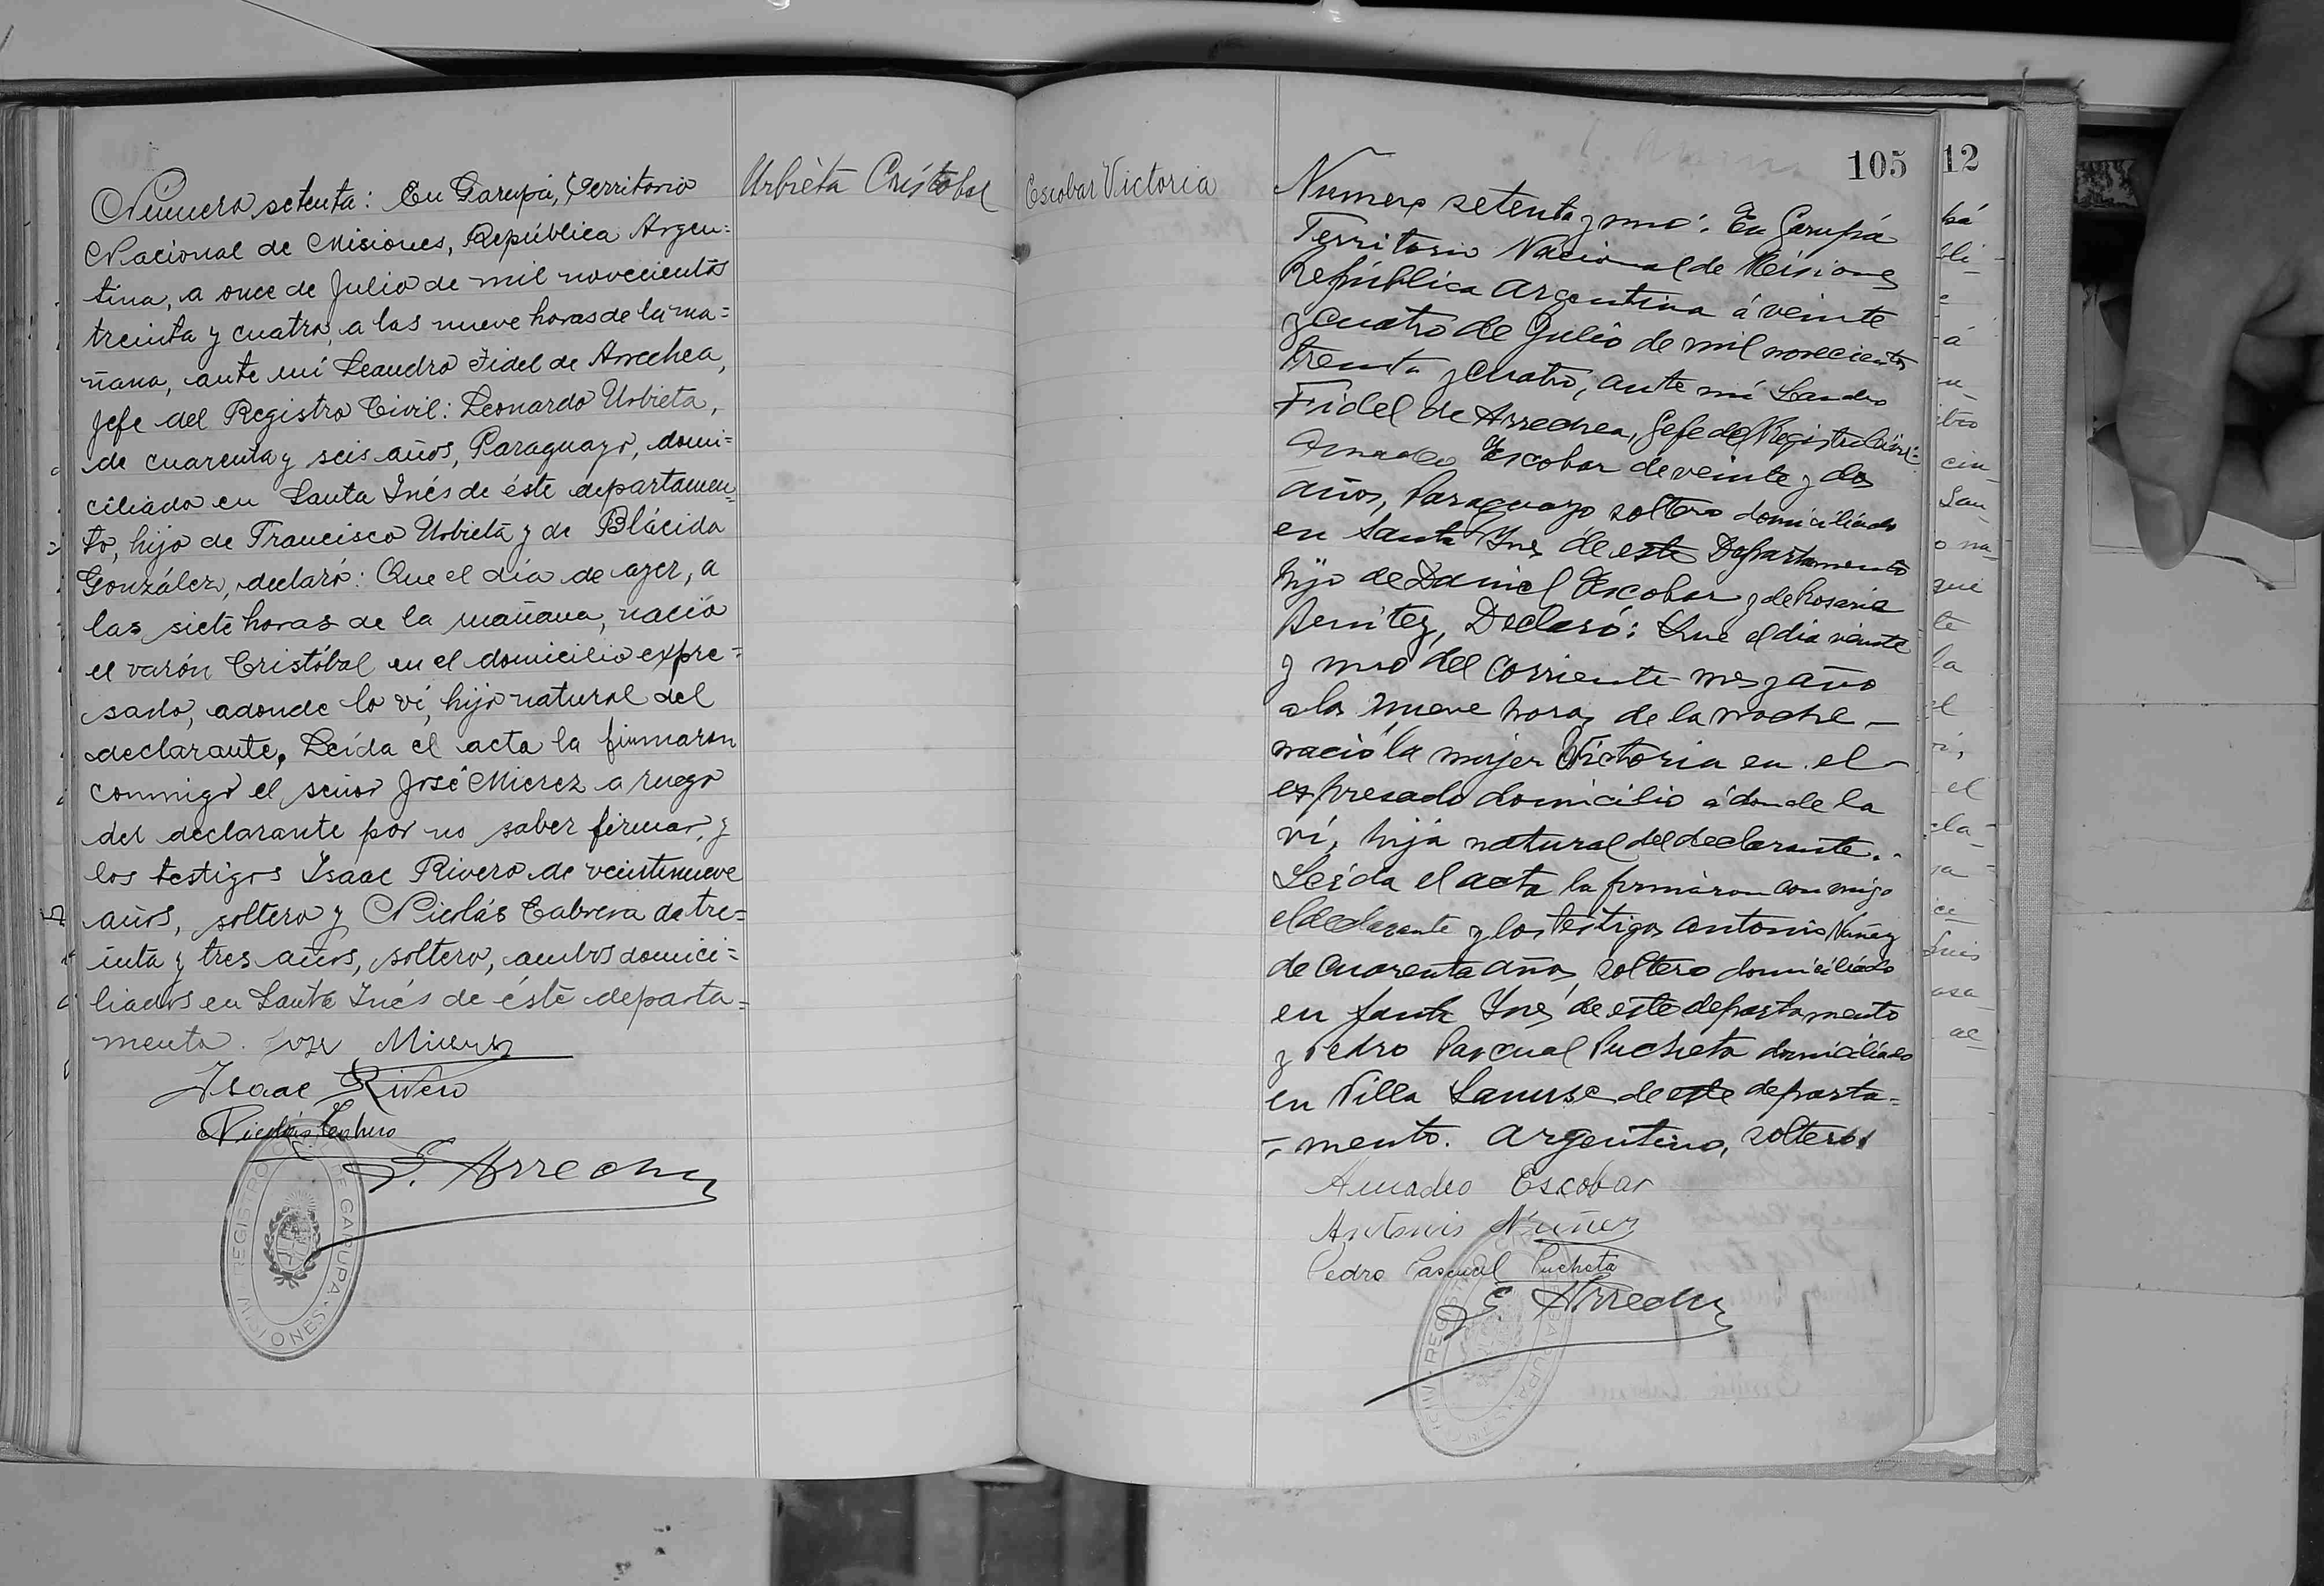 Número setenta: En Garupá, Territorio
Nacional de Misiones, República Argen=
tina, a once de Julio de mil novecientos
treinta y cuatro, a las nueve horas de la ma=
ñana, ante mí Leandro Fidel de Arrechea,
Jefe del Registro Civil: Leonardo Urbieta,
de cuarenta y seis años, Paraguayo, domi=
ciliado en Santa Inés de éste departamen=
to, hijo de Francisco Urbieta y de Blácida
González, declaró: Que el día de ayer, a
las siete horas de la mañana, nació
el varón Cristóbal en el domicilio expre=
sado, adonde lo ví, hijo natural del
declarante. Leída el acta la firmaron
conmigo el señor José Mierez a ruego
del declarante por no saber firmar, y
los testigos Isaac Rivero de veintinueve
años, soltero y Nicolás Cabrera de tre=
inta y tres años, soltero, ambos domici=
liados en Santa Inés de éste departa=
mento. José Mierez
Isaac Rivero
Nicolás
Arrechea
REGISTRO DE GARUPA · MISIONES
Urbieta Cristobal
Escobar Victoria
105
Numero setenta y uno: En Garupá
Territorio Nacional de Misiones
República Argentina á veinte
y cuatro de Julio de mil novecientos
treinta y cuatro, ante mí Leandro
Fidel de Arrechea, Jefe del Registro Civil:
Amadeo Escobar de veinte y dos
años, Paraguayo soltero domiciliado
en Santa Ynes de este Departamento
hijo de Daniel Escobar y de Rosaria
Benitez, Declaró: Que el día veinte
y uno del corriente mes y año
a las nueve horas de la noche –
nació la mujer Victoria en el –
expresado domicilio á donde la
ví, hija natural del declarante.
Leída el acta la firmaron conmigo
el declarante y los testigos Antonio Nuñez
de cuarenta años, soltero domiciliado
en Santa Ynes de este departamento
y Pedro Pascual Pucheta domiciliado
en Villa Lanusse de este departa=
=mento. Argentino, soltero
Amadeo Escobar
Antonio Nuñez
Pedro Pascual Pucheta
Arrechea
12